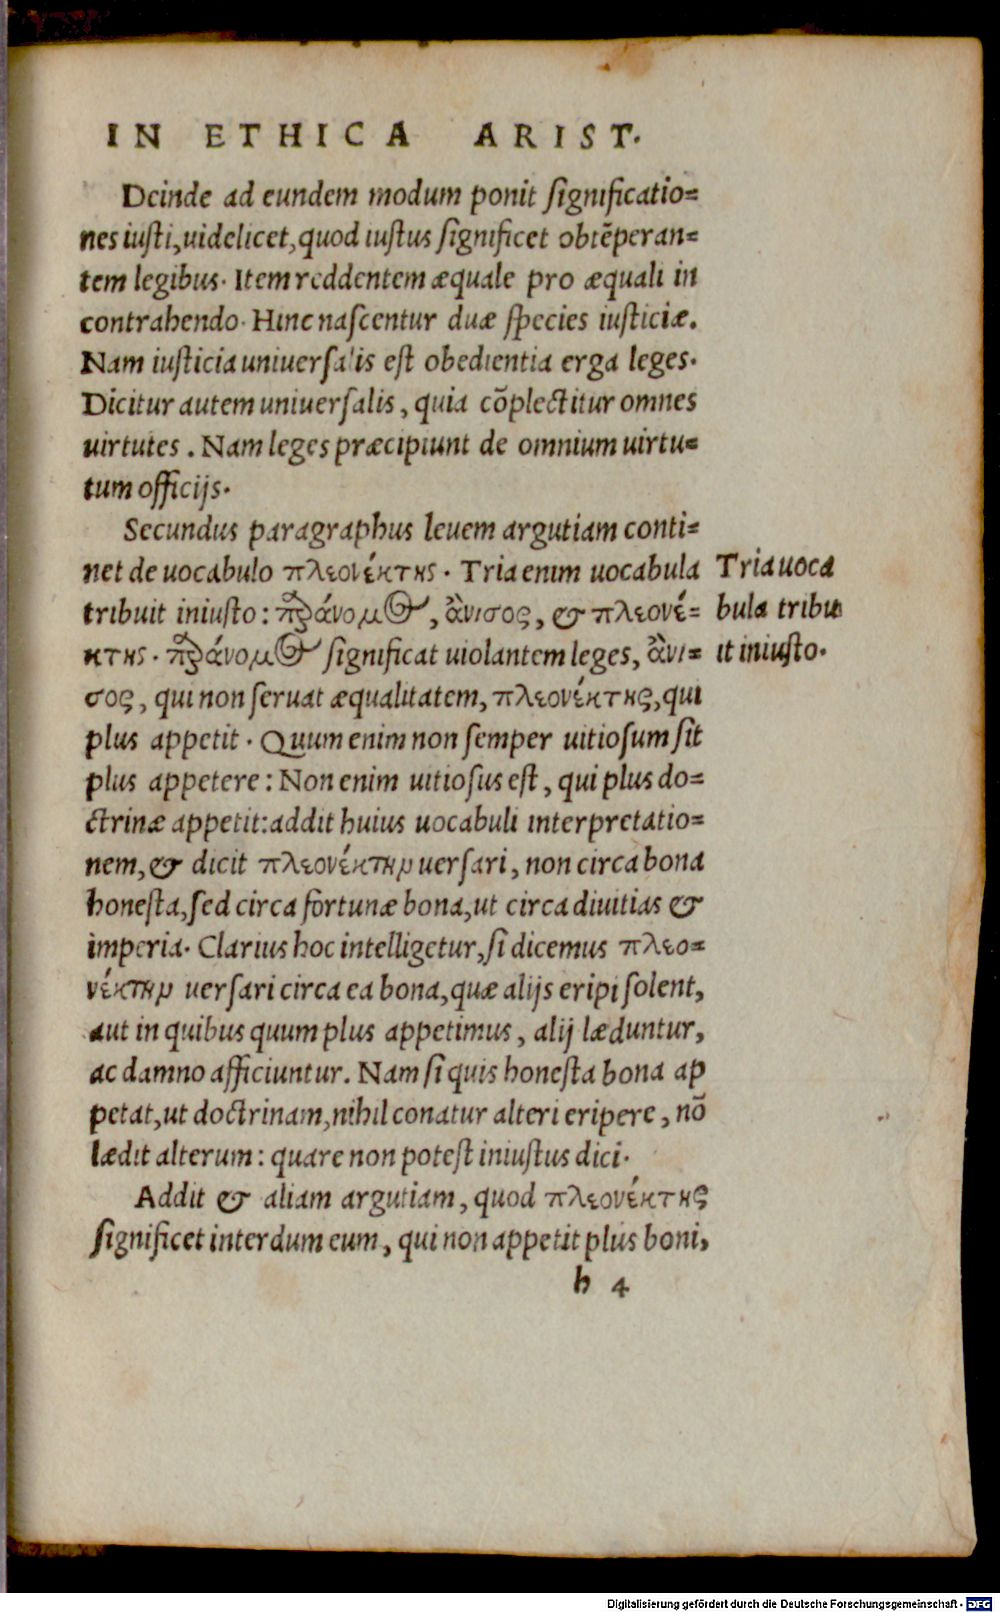 IN ETHICA ARIST.
Deinde ad eundem modum ponit ſignificatio=
nes iuſti, uidelicet, quod iuſtus ſignificet obtẽperan=
tem legibus. Item reddentem æquale pro æquali in
contrahendo. Hinc naſcentur duæ ſpecies iuſticiæ.
Nam iuſticia uniuerſalis eſt obedientia erga leges.
Dicitur autem uniuerſalis, quia cõplectitur omnes
uirtutes. Nam leges præcipiunt de omnium uirtu=
tum officijs.
Secundus paragraphus leuem argutiam conti=
net de uocabulo πλεονέκτης. Tria enim uocabula
tribuit iniuſto: παράνομος, ἄνισος, & πλεονέ=
κτης. παράνομος ſignificat uiolantem leges, ἄνι=
σος, qui non ſeruat æqualitatem, πλεονέκτης, qui
plus appetit. Quum enim non ſemper uitioſum ſit
plus appetere: Non enim uitioſus eſt, qui plus do=
ctrinæ appetit: addit huius uocabuli interpretatio=
nem, & dicit πλεονέκτην uerſari, non circa bona
honeſta, ſed circa fortunæ bona, ut circa diuitias &
imperia. Clarius hoc intelligetur, ſi dicemus πλεο=
νέκτην uerſari circa ea bona, quæ alijs eripi ſolent,
aut in quibus quum plus appetimus, alij læduntur,
ac damno afficiuntur. Nam ſi quis honeſta bona ap
petat, ut doctrinam, nihil conatur alteri eripere, nõ
lædit alterum: quare non poteſt iniuſtus dici.
Addit & aliam argutiam, quod πλεονέκτης
ſignificet interdum eum, qui non appetit plus boni,
h 4
Tria uoca
bula tribu
it iniuſto.
Digitalisierung gefördert durch die Deutsche Forschungsgemeinschaft - DFG